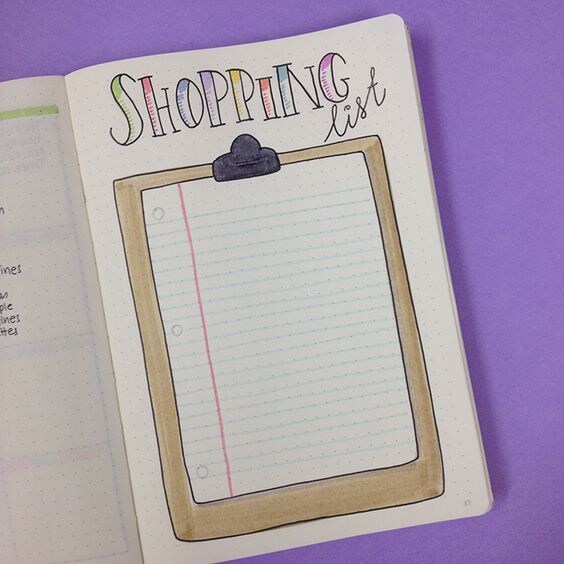 SHOPPING
list
ines
ple
ines
ttes
37